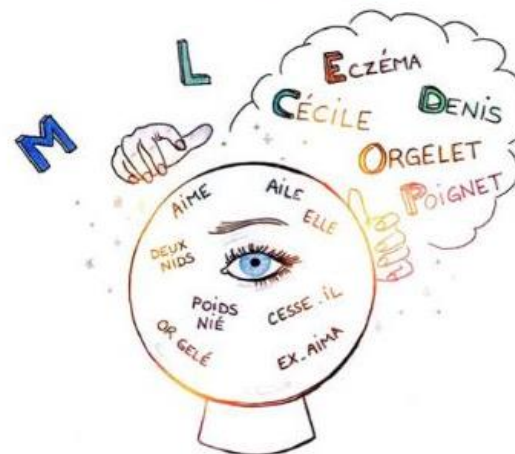 M
L
ECZÉMA
CÉCILE
DENIS
ORGELET
POIGNET
AIME
AILE
ELLE
DEUX
NIDS
POIDS
NIÉ
CESSE-IL
OR GELÉ
EX-AIMA